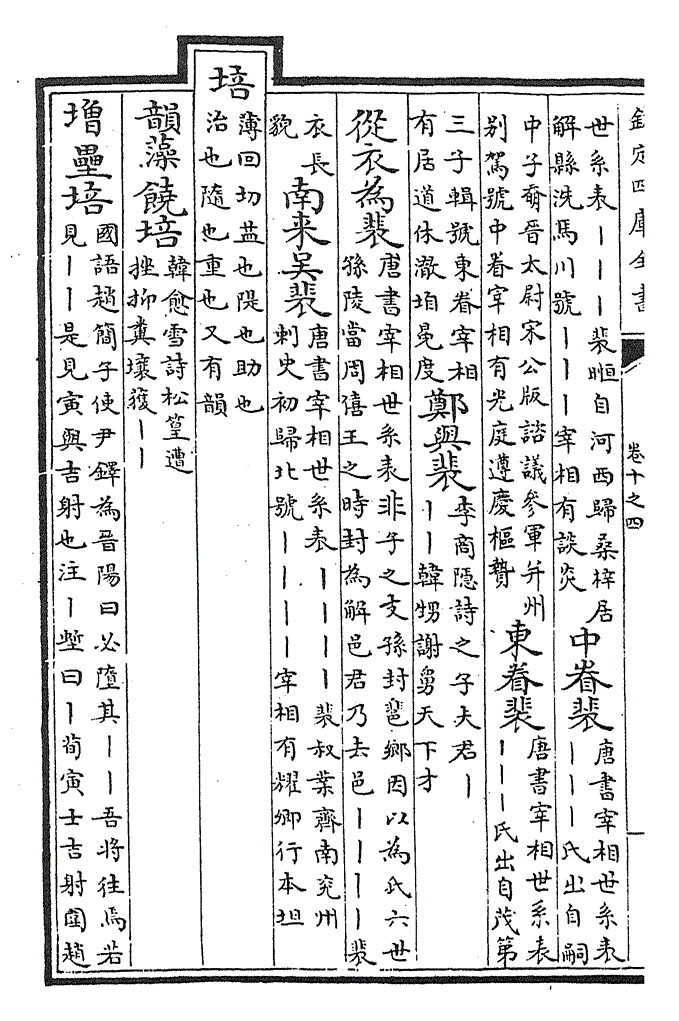 欽定四庫全書
卷十之四
世系表丨丨丨裴㬇自河西歸桑梓居
解縣洗馬川號丨丨丨宰相有談炎
中眷裴
唐書宰相世系表
丨丨丨氏出自嗣
中子奣晉太尉宋公版諮議參軍并州
别駕號中眷宰相有光庭遵慶樞贄
東眷裴
唐書宰相世系表
丨丨丨氏出自茂第
三子輯號東眷宰相
有居道休澈垍冕度
鄭與裴
李商隱詩之子夫君丨
丨丨韓甥謝舅天下才
從衣為裴
唐書宰相世系表非子之支孫封䣙鄉因以為氏六世
孫陵當周僖王之時封為解邑君乃去邑丨丨丨丨裴
衣長
貌
南来吴裴
唐書宰相世系表丨丨丨丨裴叔業齊南兖州
刺史初歸北號丨丨丨丨宰相有耀卿行本坦
培
薄回切益也隄也助也
治也隨也重也又有韻
韻藻饒培
韓愈雪詩松篁遭
挫抑糞壤獲丨丨
增壘培
國語趙簡子使尹鐸為晋陽曰必墮其丨丨吾將往焉若
見丨丨是見寅與吉射也注丨墼曰丨荀寅士吉射圍趙